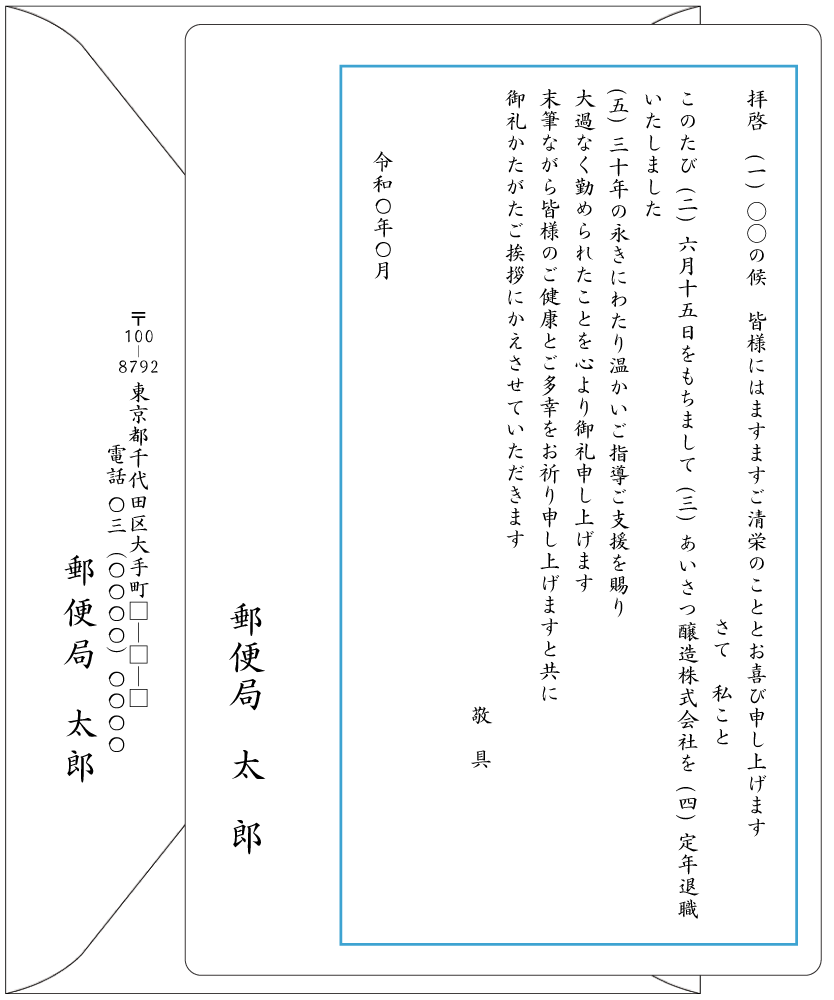 拝啓　(一) 〇〇の候　皆様にはますますご清栄のこととお喜び申し上げます
さて　私こと
このたび (二) 六月十五日をもちまして (三) あいさつ醸造株式会社を (四) 定年退職
いたしました
(五) 三十年の永きにわたり温かいご指導ご支援を賜り
大過なく勤められたことを心より御礼申し上げます
末筆ながら皆様のご健康とご多幸をお祈り申し上げますと共に
御礼かたがたご挨拶にかえさせていただきます
敬　具
令和〇年〇月
郵便局　太　郎
〒100-8792 東京都千代田区大手町□-□-□
電話 〇三 (〇〇〇〇) 〇〇〇〇
郵便局　太郎